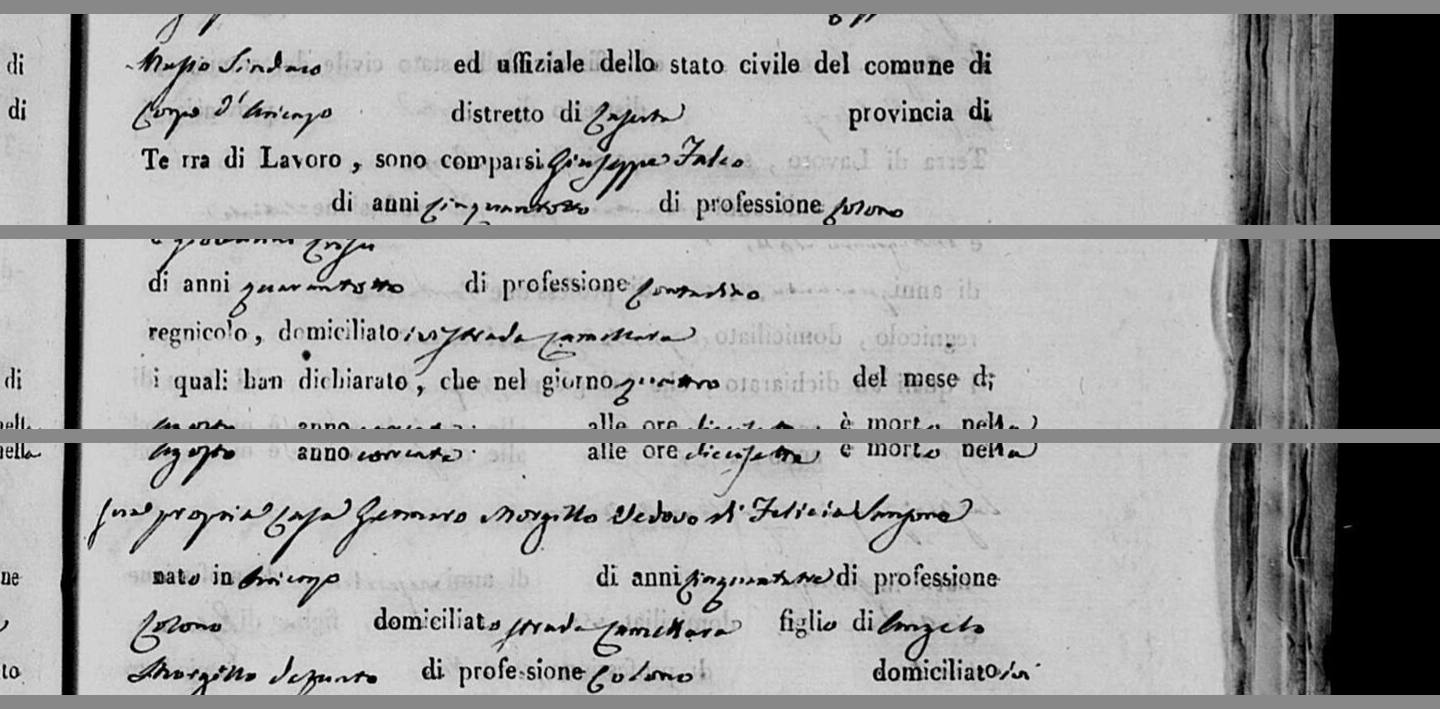 di Sindaco ed uffiziale dello stato civile del comune di
di Corpo d'Arienzo distretto di Caserta provincia di
Terra di Lavoro, sono comparsi Giuseppe Falco
di anni di professione Colono
e Giovanni
di anni quarantotto di professione Contadino
regnicolo, domiciliato in strada Cancellara
di i quali han dichiarato, che nel giorno quattro del mese di
nella Agosto anno corrente alle ore diecisette è morto nella
sua propria Casa Gennaro Morgillo Vedovo di Felicia
ne nato in Arienzo di anni di professione
Colono domiciliato strada Cancellara figlio di Angelo
to Morgillo defunto di professione Colono domiciliato in